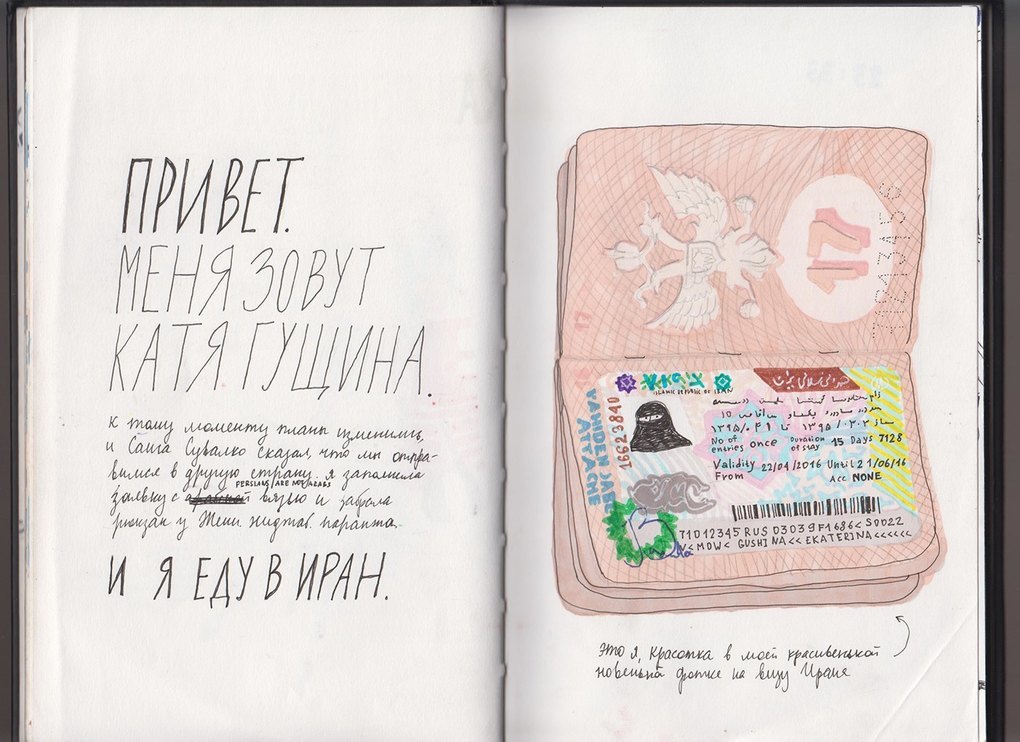 ПРИВЕТ.
МЕНЯ ЗОВУТ
КАТЯ ГУЩИНА.
К тому моменту планы изменились,
и Саша Сувалко сказал, что мы отпра-
вимся в другую страну. Я заполнила
PERSIANS ARE NOT ARABS
заявку с вязью и забрала
у Жени
И Я ЕДУ В ИРАН.
17
17
ISLAMIC REPUBLIC OF IRAN
16623840
ATTACHE
No of entries once Duration of stay 15 Days 7128
Validity From 22/01/2016 Until 21/06/16
Acc NONE
71012345 RUS D3039F1686< SOD22
<<MOW< GUSHINA<< EKATERINA<<<<<<
Это я, красотка в моей красивенькой
новенькой фотке на визу Ирана